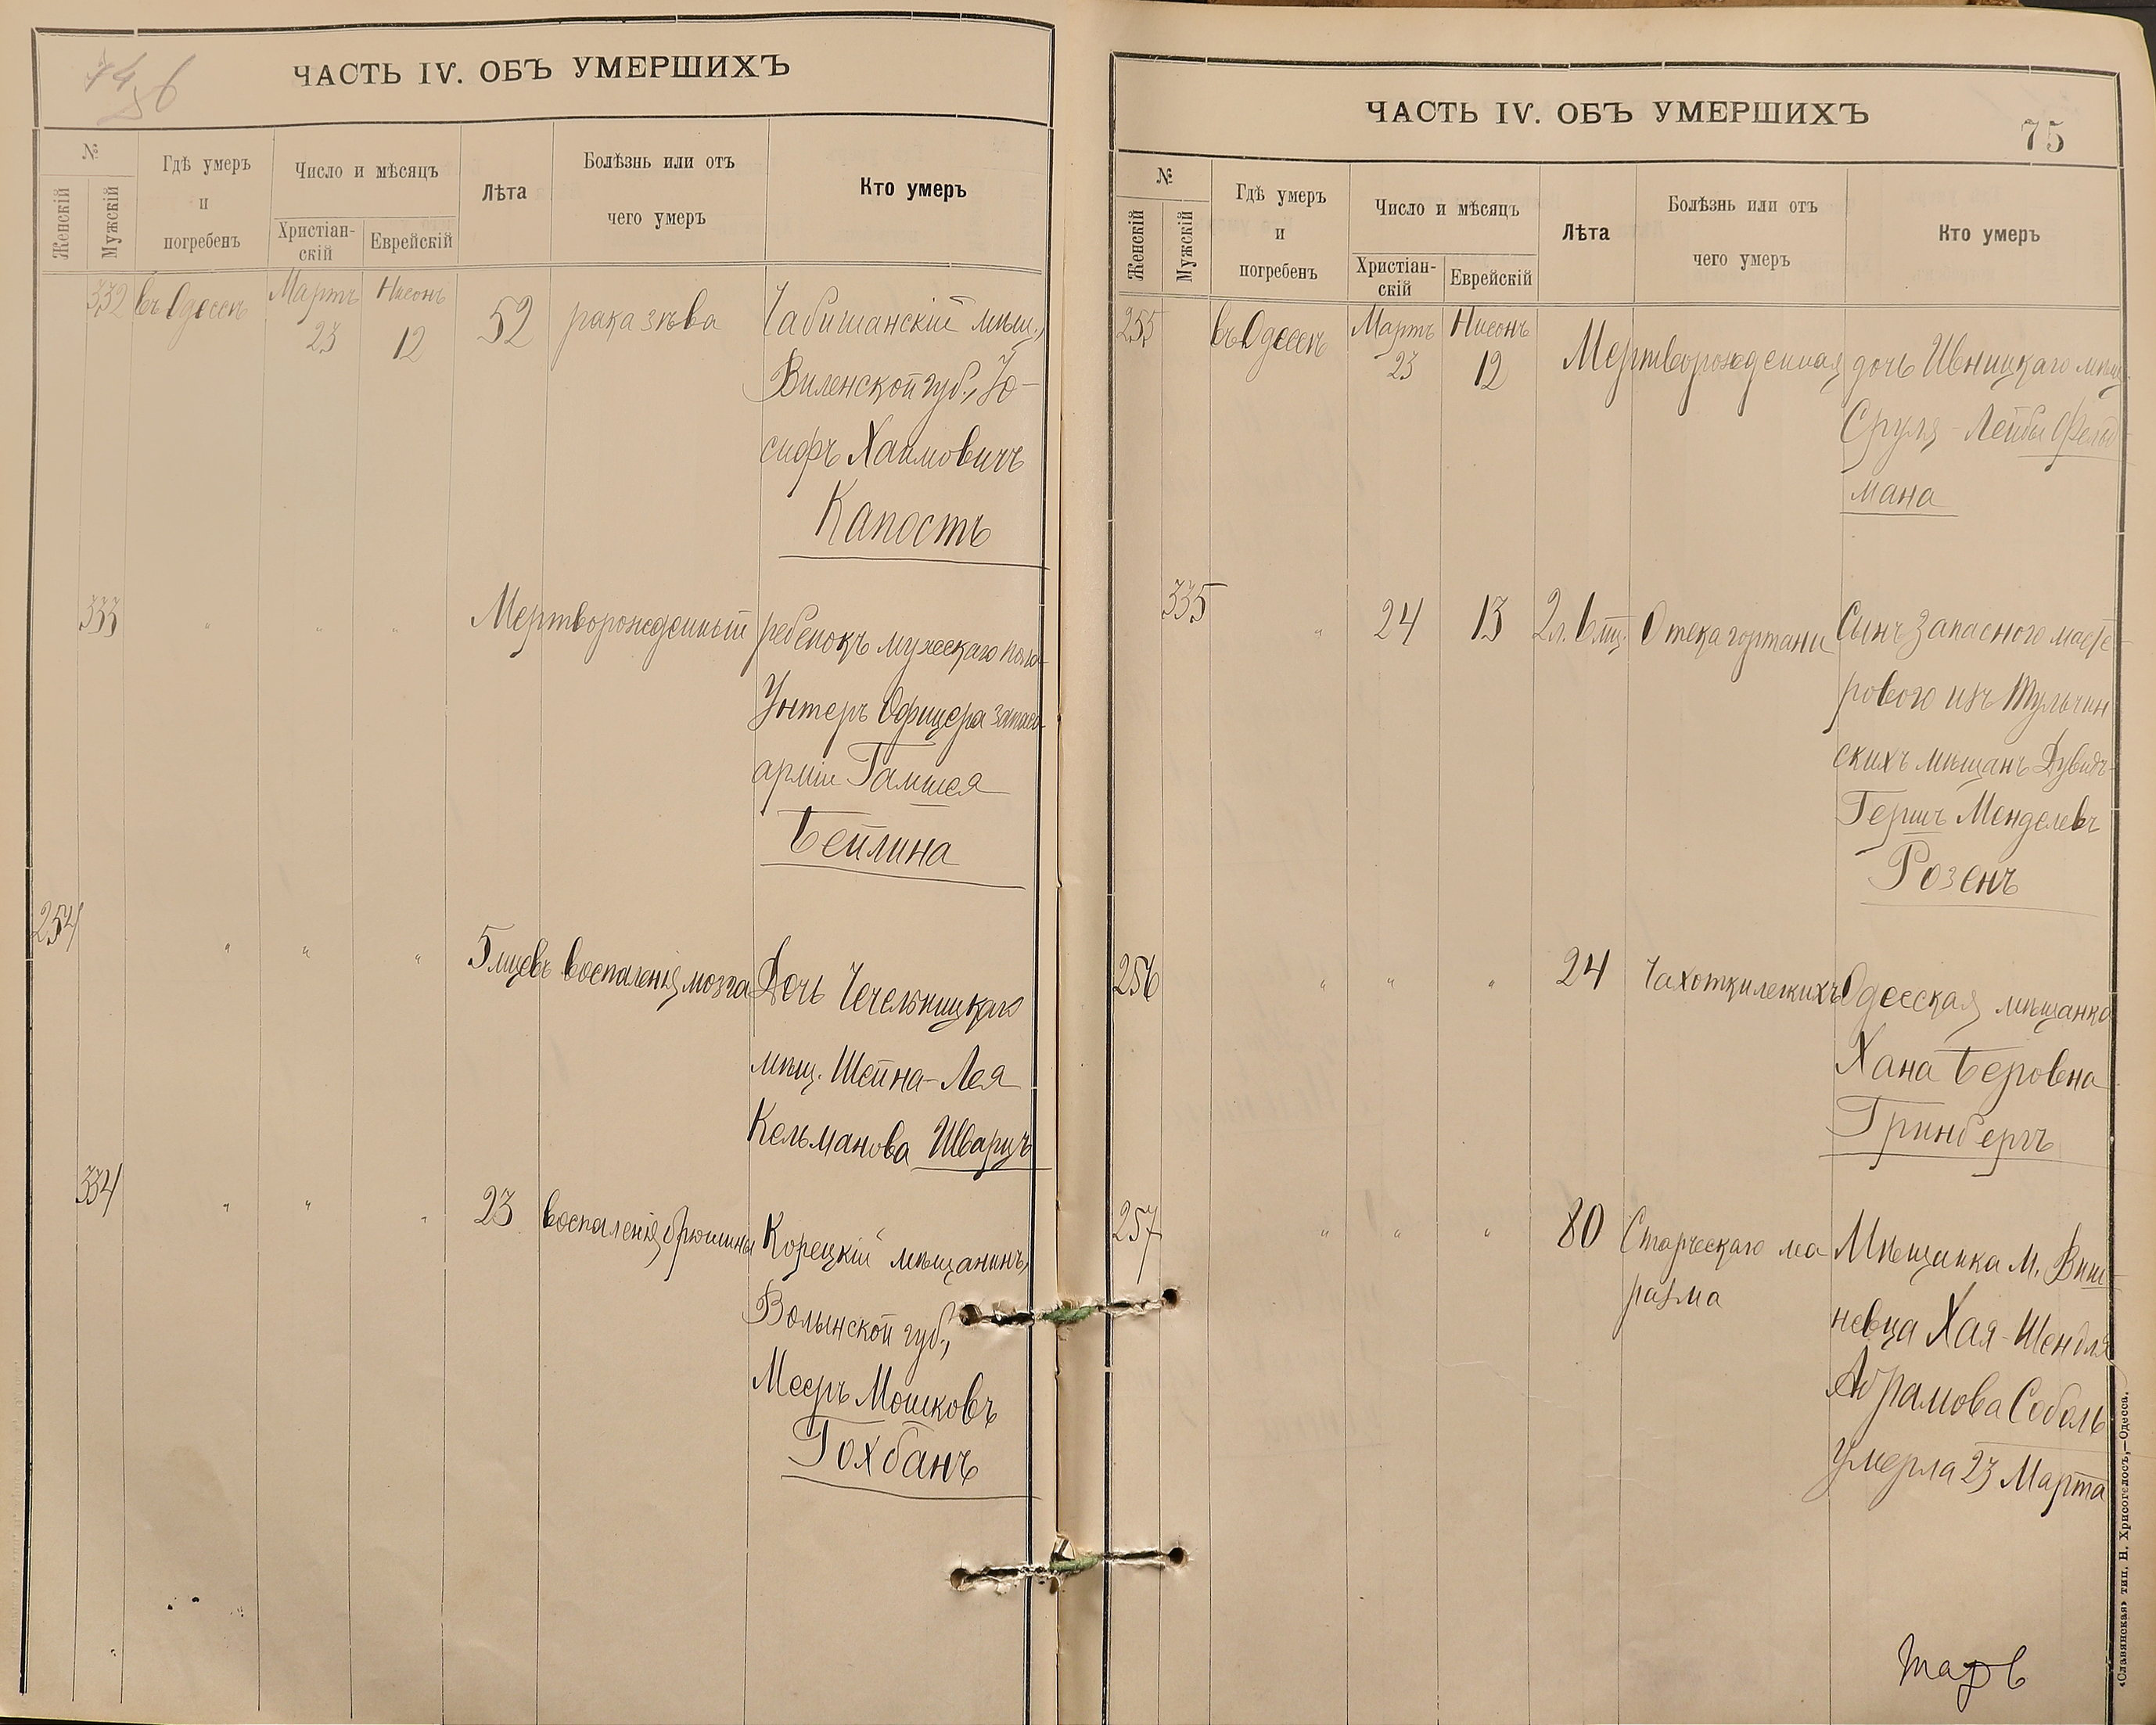 74
56
ЧАСТЬ IV. ОБЪ УМЕРШИХЪ
№
Женскій
Мужскій
Гдѣ умеръ
и
погребенъ
Число и мѣсяцъ
Христіан-
скій
Еврейскій
Лѣта
Болѣзнь или отъ
чего умеръ
Кто умеръ
332 въ Одессѣ Мартъ 23 Нисонъ 12 52 рака зѣва Чабишанскій мѣщ.,
Виленской губ., Іо-
сифъ Хаимовичъ
Капостъ
333 " " " Мертворожденный ребенокъ мужескаго пола
Унтеръ Офицера запаса
арміи Гамшея
Бейлина
254 " " " 5 мцевъ воспаленія мозга Дочь Чечельницкаго
мѣщ. Шейна-Лея
Кельманова Шварцъ
334 " " " 23 воспаленія брюшины Корецкій мѣщанинъ,
Волынской губ.,
Мееръ Мошковъ
Гохбанъ
ЧАСТЬ IV. ОБЪ УМЕРШИХЪ
75
№
Женскій
Мужскій
Гдѣ умеръ
и
погребенъ
Число и мѣсяцъ
Христіан-
скій
Еврейскій
Лѣта
Болѣзнь или отъ
чего умеръ
Кто умеръ
255 въ Одессѣ Мартъ 23 Нисонъ 12 Мертворожденная дочь Ивницкаго мѣщ.
Сруля-Лейбы Фельд
мана
335 " 24 13 2 л. 6 мц. Отека гортани Сынъ запасного масте
рового изъ Тульчин
скихъ мѣщанъ Дувидъ-
Гершъ Менделевъ
Розенъ
256 " " " 24 Чахотки легкихъ Одесская мѣщанка
Хана Беровна
Гринбергъ
257 " " " 80 Старческаго ма Мѣщанка м. Виш-
разма невца Хая-Шендля
Абрамова Соболь
умерла 23 Марта
«Славянская» тип. Н. Хрисогелосъ,—Одесса.